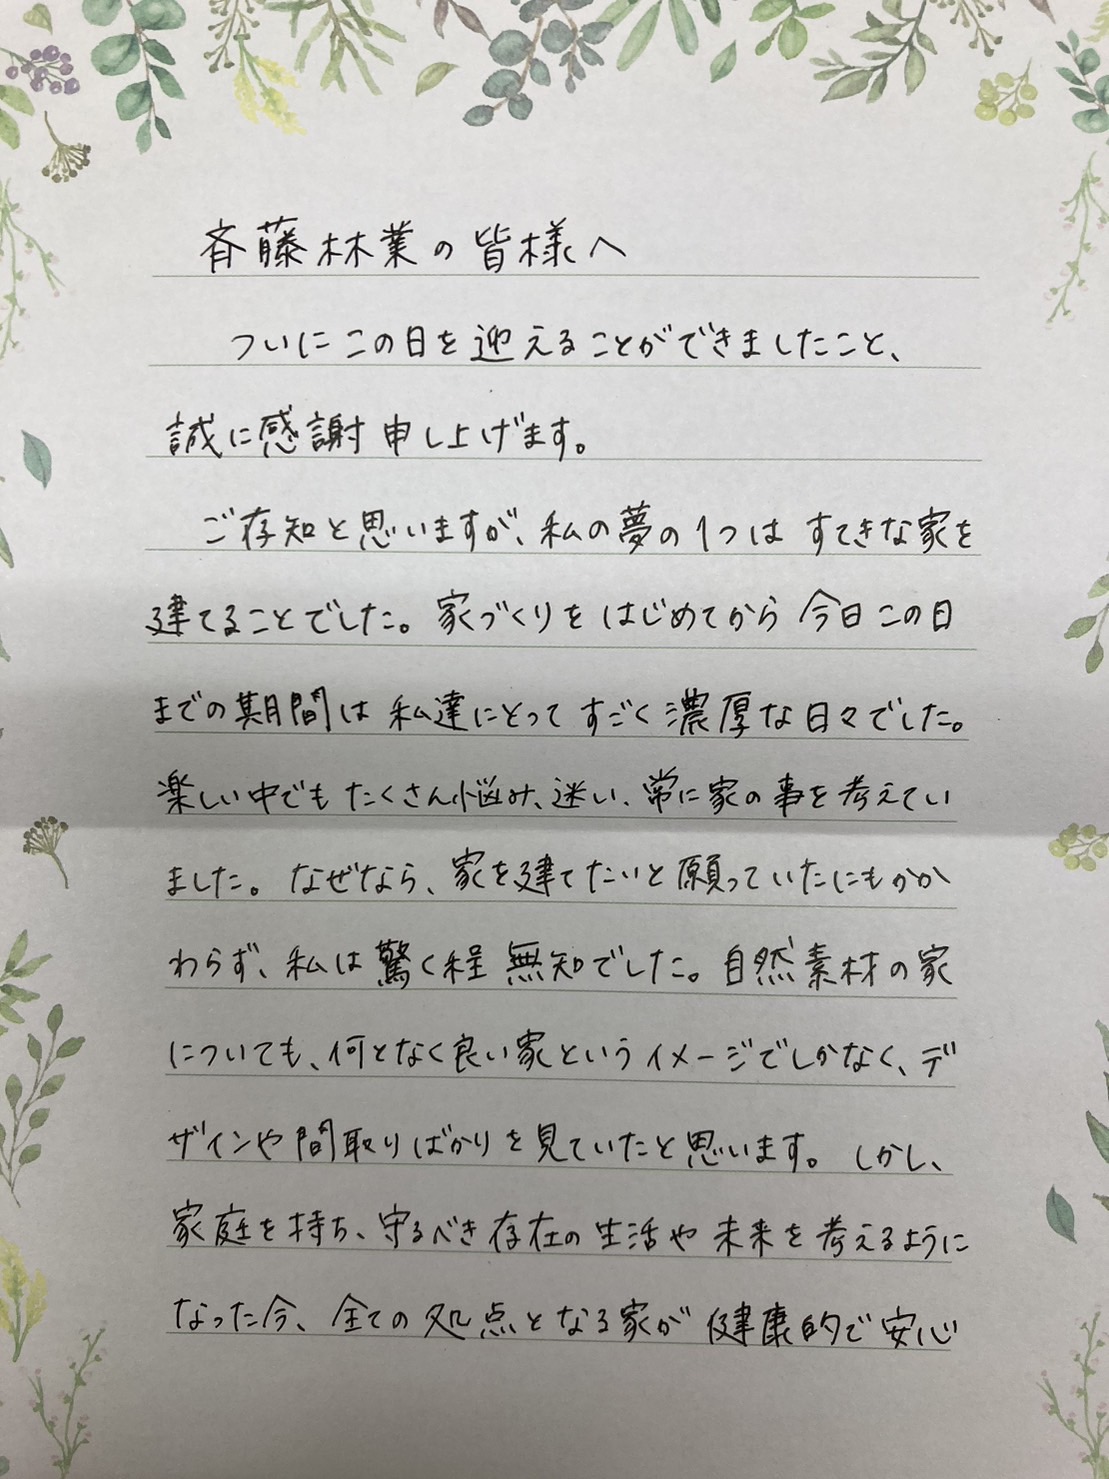 斉藤林業の皆様へ
ついにこの日を迎えることができましたこと、
誠に感謝申し上げます。
ご存知と思いますが、私の夢の1つはすてきな家を
建てることでした。家づくりをはじめてから今日この日
までの期間は私達にとってすごく濃厚な日々でした。
楽しい中でもたくさん悩み、迷い、常に家の事を考えてい
ました。なぜなら、家を建てたいと願っていたにもかか
わらず、私は驚く程無知でした。自然素材の家
についても、何となく良い家というイメージでしかなく、デ
ザインや間取りばかりを見ていたと思います。しかし、
家庭を持ち、守るべき存在の生活や未来を考えるように
なった今、全ての処点となる家が健康的で安心